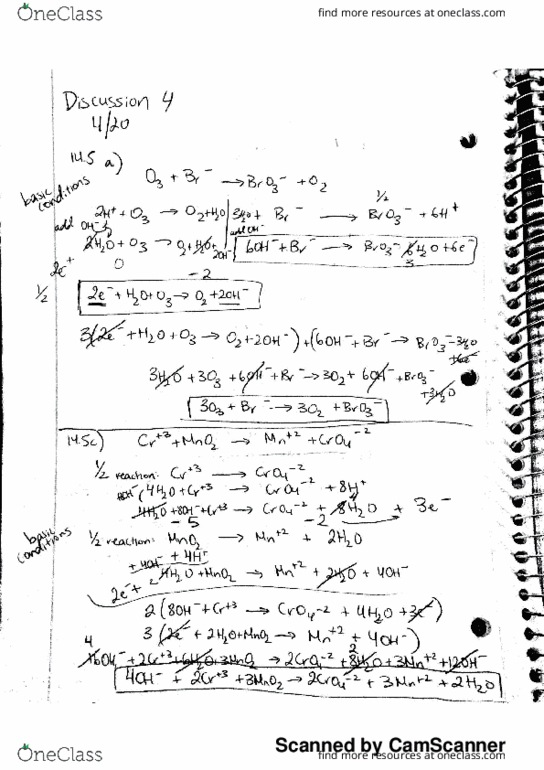 OneClass
find more resources at oneclass.com
Discussion 4
4/20
14.5 a) O3 + Br⁻ → BrO3⁻ + O2
basic conditions
1/2
2H⁺ + O3 → O2 + H2O
3H2O + Br⁻ → BrO3⁻ + 6H⁺
add OH⁻
add OH⁻
2H2O + O3 → O2 + H2O + 2OH⁻
6OH⁻ + Br⁻ → BrO3⁻ 6H2O + 6e⁻
3
2e⁻ +
0
-2
1/2
2e⁻ + H2O + O3 → O2 + 2OH⁻
3(2e⁻ + H2O + O3 → O2 + 2OH⁻) + (6OH⁻ + Br⁻ → BrO3⁻ - 3H2O
+6e⁻
3H2O + 3O3 + 6OH⁻ + Br⁻ → 3O2 + 6OH⁻ + BrO3⁻
+3H2O
3O3 + Br⁻ → 3O2 + BrO3⁻
14.5c) Cr⁺³ + MnO2 → Mn⁺² + CrO4⁻²
1/2 reaction: Cr⁺³ → CrO4⁻²
8OH⁻ (4H2O + Cr⁺³ → CrO4⁻² + 8H⁺
4H2O + 8OH⁻ + Cr⁺³ → CrO4⁻² + 8H2O + 3e⁻
4
-5
-2
basic conditions
1/2 reaction: MnO2 → Mn⁺² + 2H2O
+ 4OH⁻ + 4H⁺
2e⁻ + 2 4H2O + MnO2 → Mn⁺² + 2H2O + 4OH⁻
2(8OH⁻ + Cr⁺³ → CrO4⁻² + 4H2O + 3e⁻)
3(2e⁻ + 2H2O + MnO2 → Mn⁺² + 4OH⁻)
4
2
16OH⁻ + 2Cr⁺³ + 6H2O + 3MnO2 → 2CrO4⁻² + 8H2O + 3Mn⁺² + 12OH⁻
4OH⁻ + 2Cr⁺³ + 3MnO2 → 2CrO4⁻² + 3Mn⁺² + 2H2O
Scanned by CamScanner
OneClass
find more resources at oneclass.com